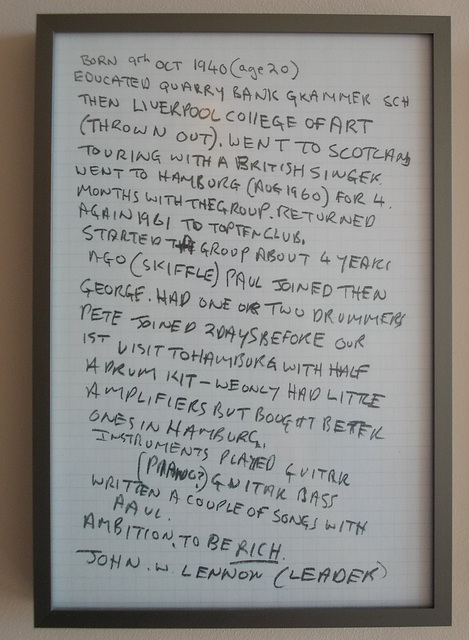 BORN 9th OCT 1940 (age 20)
EDUCATED QUARRY BANK GRAMMER SCH
THEN LIVERPOOL COllEGE OF ART
(THROWN OUT). WENT TO SCOTLAND
TOURING WITH A BRITISH SINGER.
WENT TO HAMBURG (AUG 1960) FOR 4.
MONTHS WITH THE GROUP. RETURNED
AGAIN 1961 TO TOPTEN CLUB.
STARTED GROUP ABOUT 4 YEARS
AGO (SKIFFLE) PAUL JOINED THEN
GEORGE. HAD ONE OR TWO DRUMMERS
PETE JOINED 2 DAYS BEFORE OUR
1ST VISIT TO HAMBURG WITH HALF
A DRUM KIT – WE ONLY HAD LITTLE
AMPLIFIERS BUT BOUGHT BETTER
ONES IN HAMBURG.
INSTRUMENTS PLAYED GUITAR
(PIANO?) GUITAR BASS
WRITTEN A COUPLE OF SONGS WITH
PAUL.
AMBITION. TO BE RICH.
JOHN. W. LENNON (LEADER)